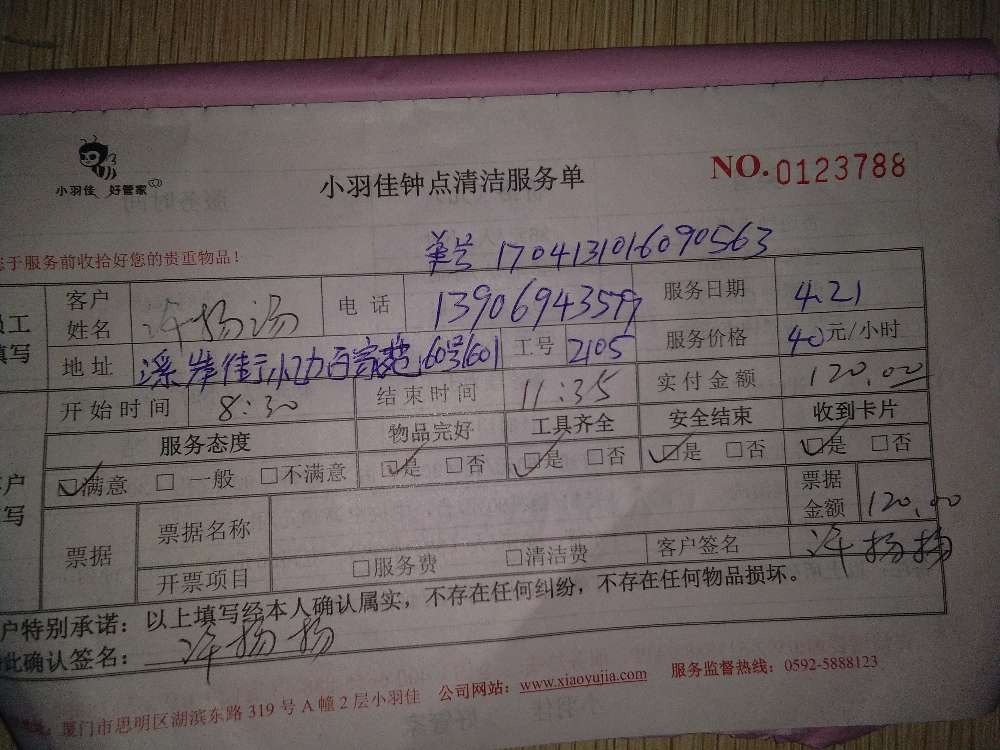 小羽佳 好管家
小羽佳钟点清洁服务单
NO.0123788
于服务前收拾好您的贵重物品！
单号 1704131016090563
员工填写
客户姓名 许杨汤 电话 13906943579 服务日期 4.21
地址 溪岸佳 百家苑 60号601 工号 2105 服务价格 40元/小时
开始时间 8:30 结束时间 11:35 实付金额 120.00
服务态度 物品完好 工具齐全 安全结束 收到卡片
☑满意 □一般 □不满意 ☑是 □否 ☑是 □否 ☑是 □否 ☑是 □否
客户填写
票据 票据名称 票据金额 120.00
开票项目 □服务费 □清洁费 客户签名 许杨杨
户特别承诺：以上填写经本人确认属实，不存在任何纠纷，不存在任何物品损坏。
此确认签名：许杨杨
地址：厦门市思明区湖滨东路319号A幢2层小羽佳 公司网站：www.xiaoyujia.com 服务监督热线：0592-5888123